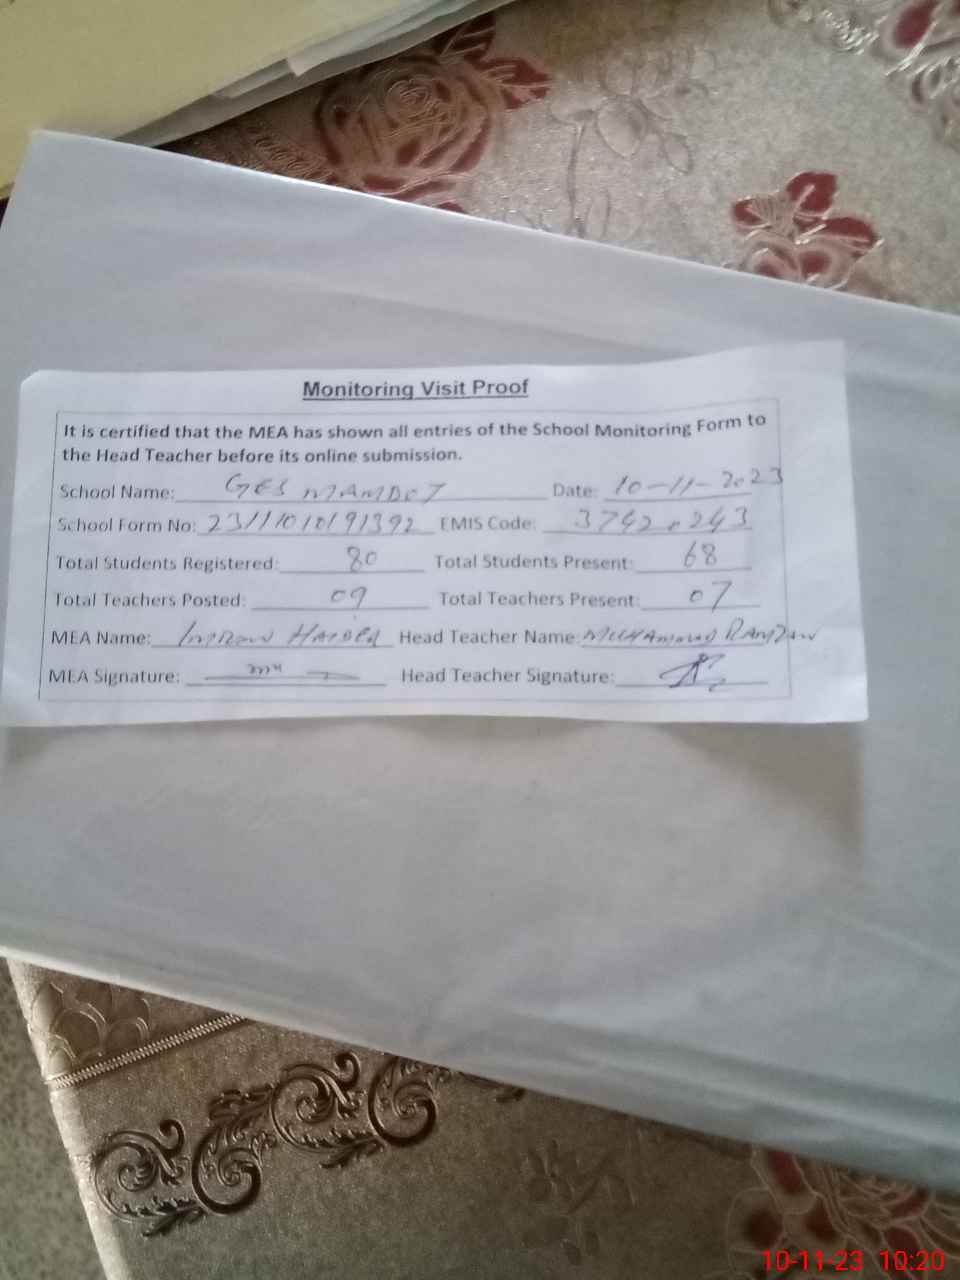 Monitoring Visit Proof
It is certified that the MEA has shown all entries of the School Monitoring Form to
the Head Teacher before its online submission.
School Name: GES MAMDOT Date: 10-11-2023
School Form No: 23111010191392 EMIS Code: 37420243
Total Students Registered: 80 Total Students Present: 68
Total Teachers Posted: 09 Total Teachers Present: 07
MEA Name: Imran Haider Head Teacher Name: Muhammad Ramzan
MEA Signature: Head Teacher Signature:
10-11-23 10:20